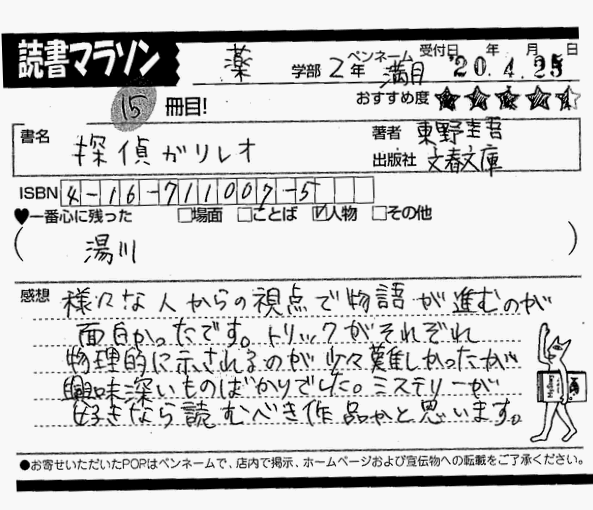 読書マラソン 薬 学部 2年 ペンネーム 満月 受付日 年 月 日 20.4.25
15 冊目! おすすめ度 ★★★★
書名 探偵ガリレオ 著者 東野圭吾
出版社 文春文庫
ISBN 4-16-711007-5
♥一番心に残った □場面 □ことば ☑人物 □その他
( 湯川 )
感想 様々な人からの視点で物語が進むのが
面白かったです。トリックがそれぞれ
物理的に示されるのが少々難しかったが
興味深いものばかりでした。ミステリーが
好きなら読むべき作品かと思います。
●お寄せいただいたPOPはペンネームで、店内で掲示、ホームページおよび宣伝物への転載をご了承ください。